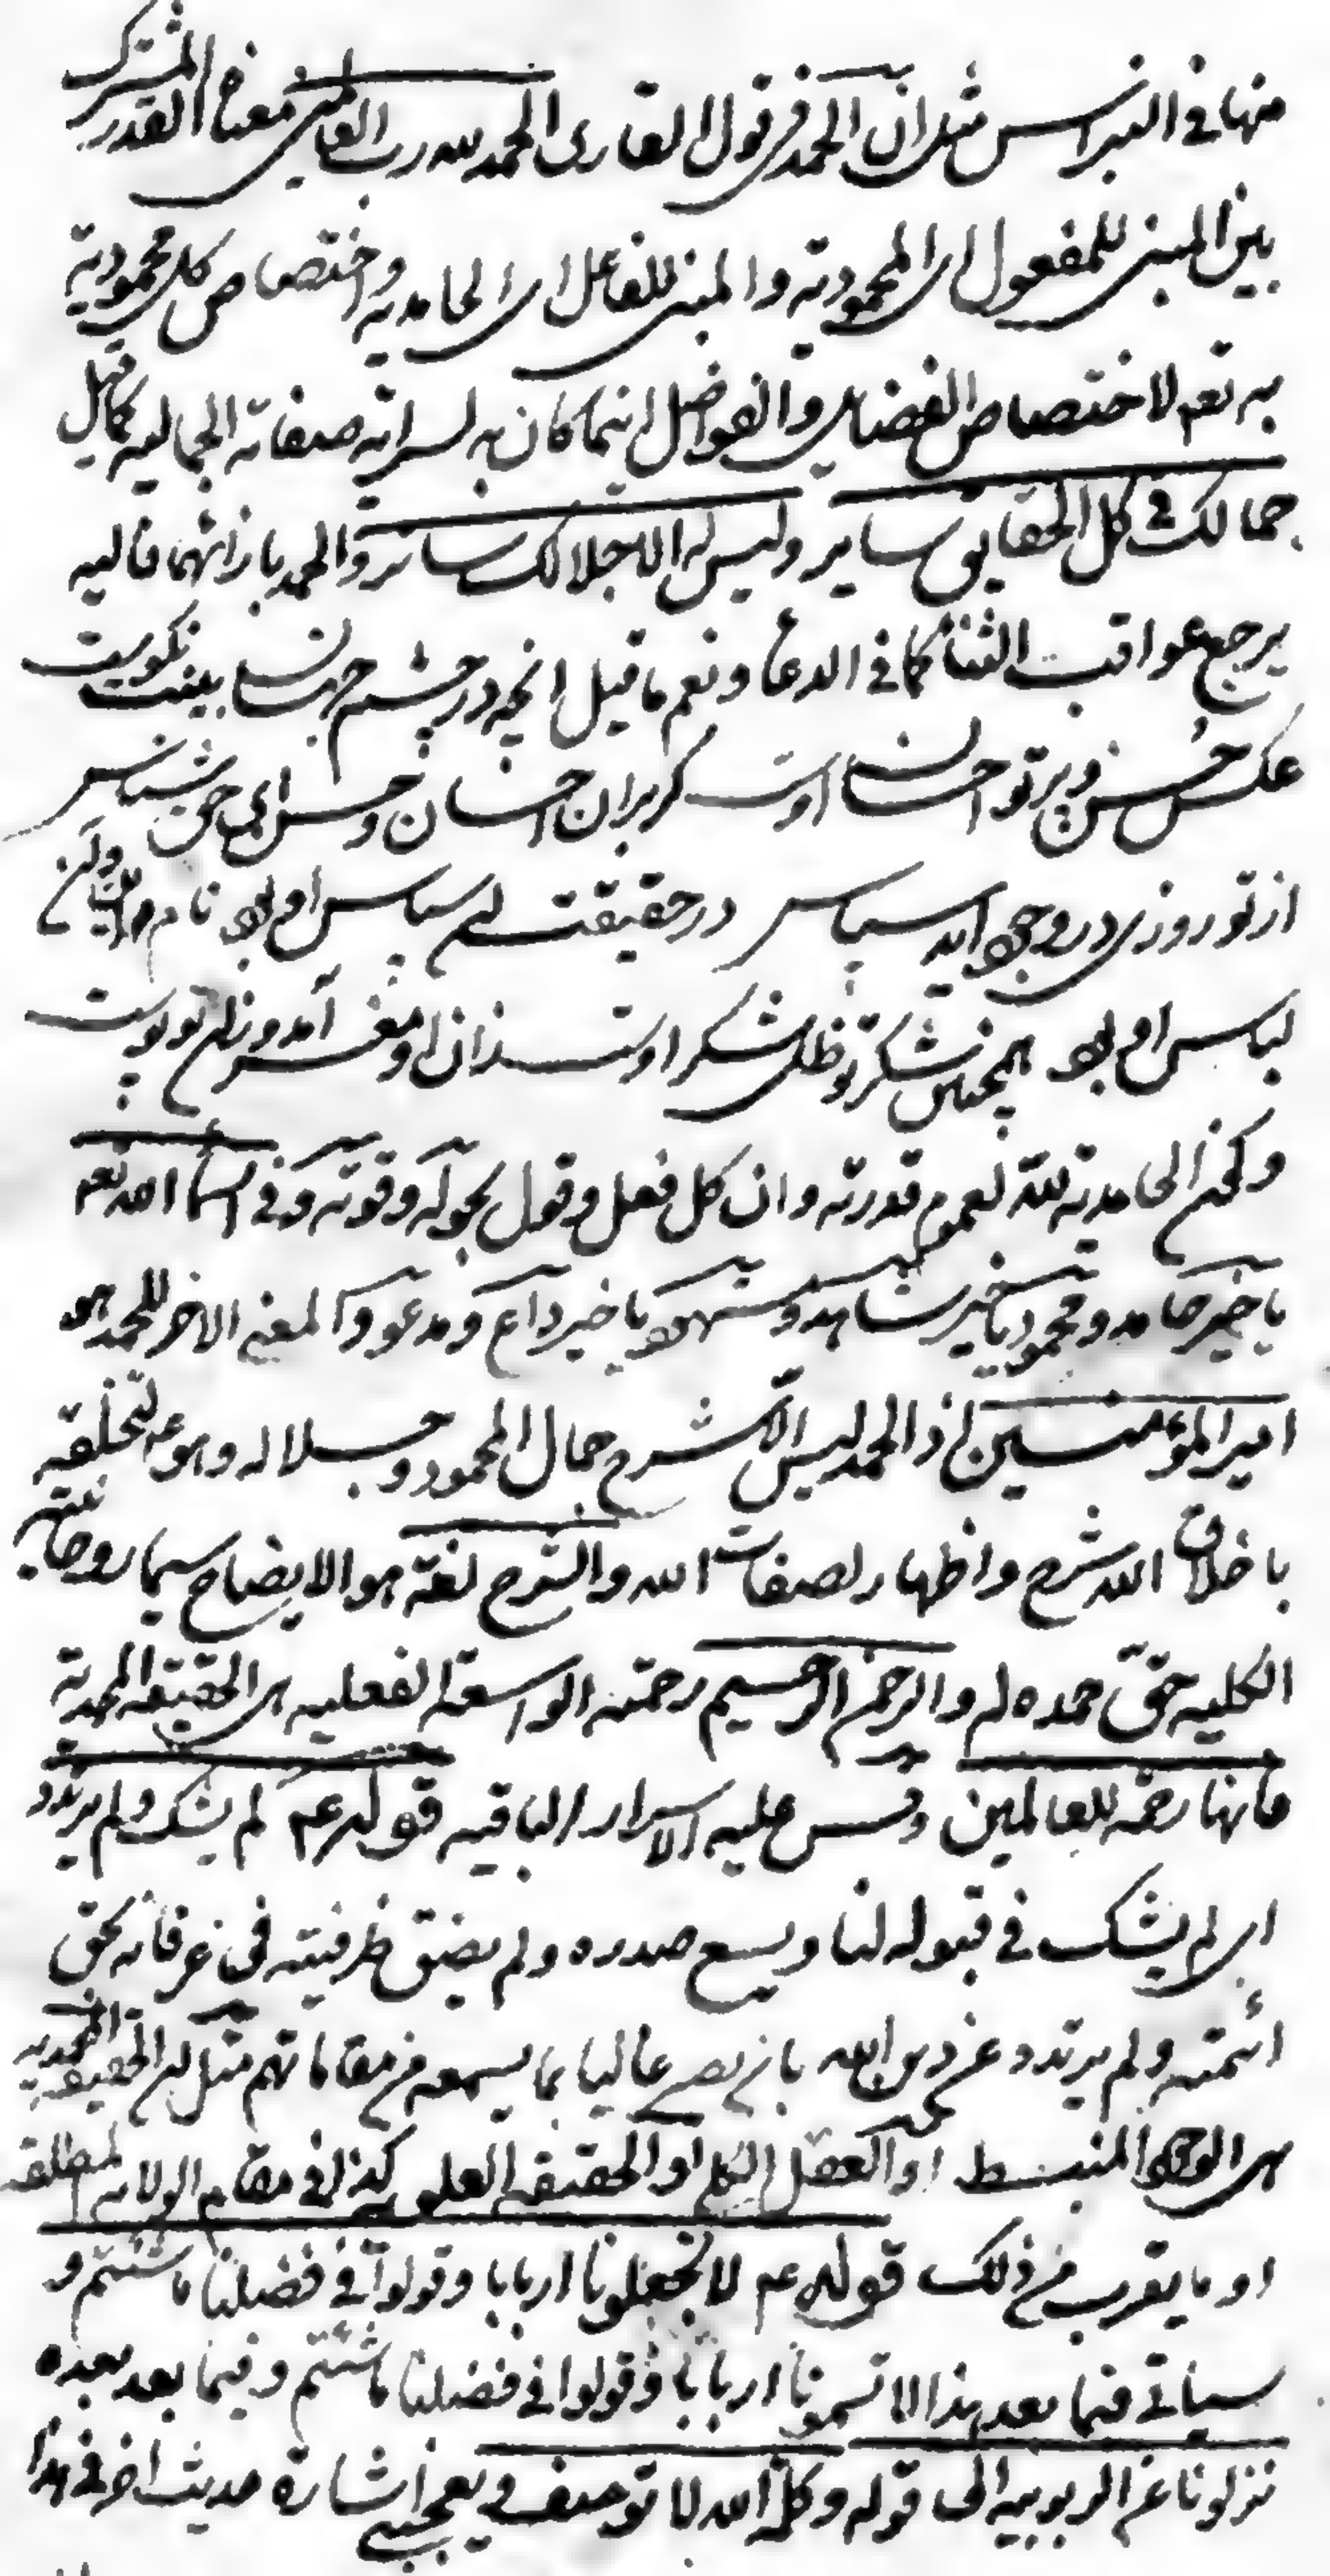 منها فی النبراس مثل ان الحمد فی قول القاری الحمد لله رب العالمین معناه القدر المشترک
بین المبنی للمفعول ای المحمودیة والمبنی للفاعل ای الحامدیة واختصاص کل محمودیة
به تعم لاختصاص الفضایل والفواضل اینما کان به لسرایة صفاته الجمالیه کما قیل
جمالک فی کل الحقایق سایر ولیس له الا جلالک ساتر والحمد بازائهما فالیه
یرجع عواقب الثناء کما فی الدعاء ونعم ما قیل انچه در چشم جهان بینت نکوست
عکس حسن و پرتو احسان اوست گر بران احسان و حسن ای حق شناس
از تو روزی در وجود اید سپاس در حقیقت ان سپاس او بود نام این وان
لباس او بود همچنین شکر تو ظل شکر اوست زان او مغز آمد و زان تو پوست
وکذا الحامدیة لله لعموم قدرته وان کل فعل وقول بحوله وقوته وفی اسماء الله تعم
یا خیر حامد ومحمود یا خیر شاهد ومشهود یا خیر داع ومدعو والمعنی الاخر للحمد هو
امیر المؤمنین اذ الحمد لیس الا شرح جمال المحمود وجلاله وهو ع لتخلقه
باخلاق الله شرح واظهار لصفات الله والشرح لغة هو الایضاح سیما روحانیته
الکلیه حق حمده له والرحمن الرحیم رحمته الواسعة الفعلیه ای الحقیقة المحمدیة
فانها رحمة للعالمین وقس علیه الاسرار الباقیه قوله ع لم یشک ولم یرتدد
ای لم یشک فی قبوله لنا ویسع صدره ولم یضق ظرفیته فی عرفانه بحق
ائمته ولم یرتدد عن دین الله بان یصیر غالیا بما یسمعه من مقاماتهم مثل ان الحقیقة المحمدیه
هی الوجود المنبسط او العقل الکلی او الحقیقة العلویه کذا فی مقام الولایة المطلقة
او ما یقرب من ذلک قوله ع لا تجعلونا اربابا وقولوا فی فضلنا ما شئتم و
سیاتی فیما بعد هذا لا تسمونا اربابا وقولوا فی فضلنا ما شئتم وفیما بعد بعده
نزلونا عن الربوبیه الی قوله وکلمة الله لا توصف ویعجبنی اشارة حدیث اخر فی هذا